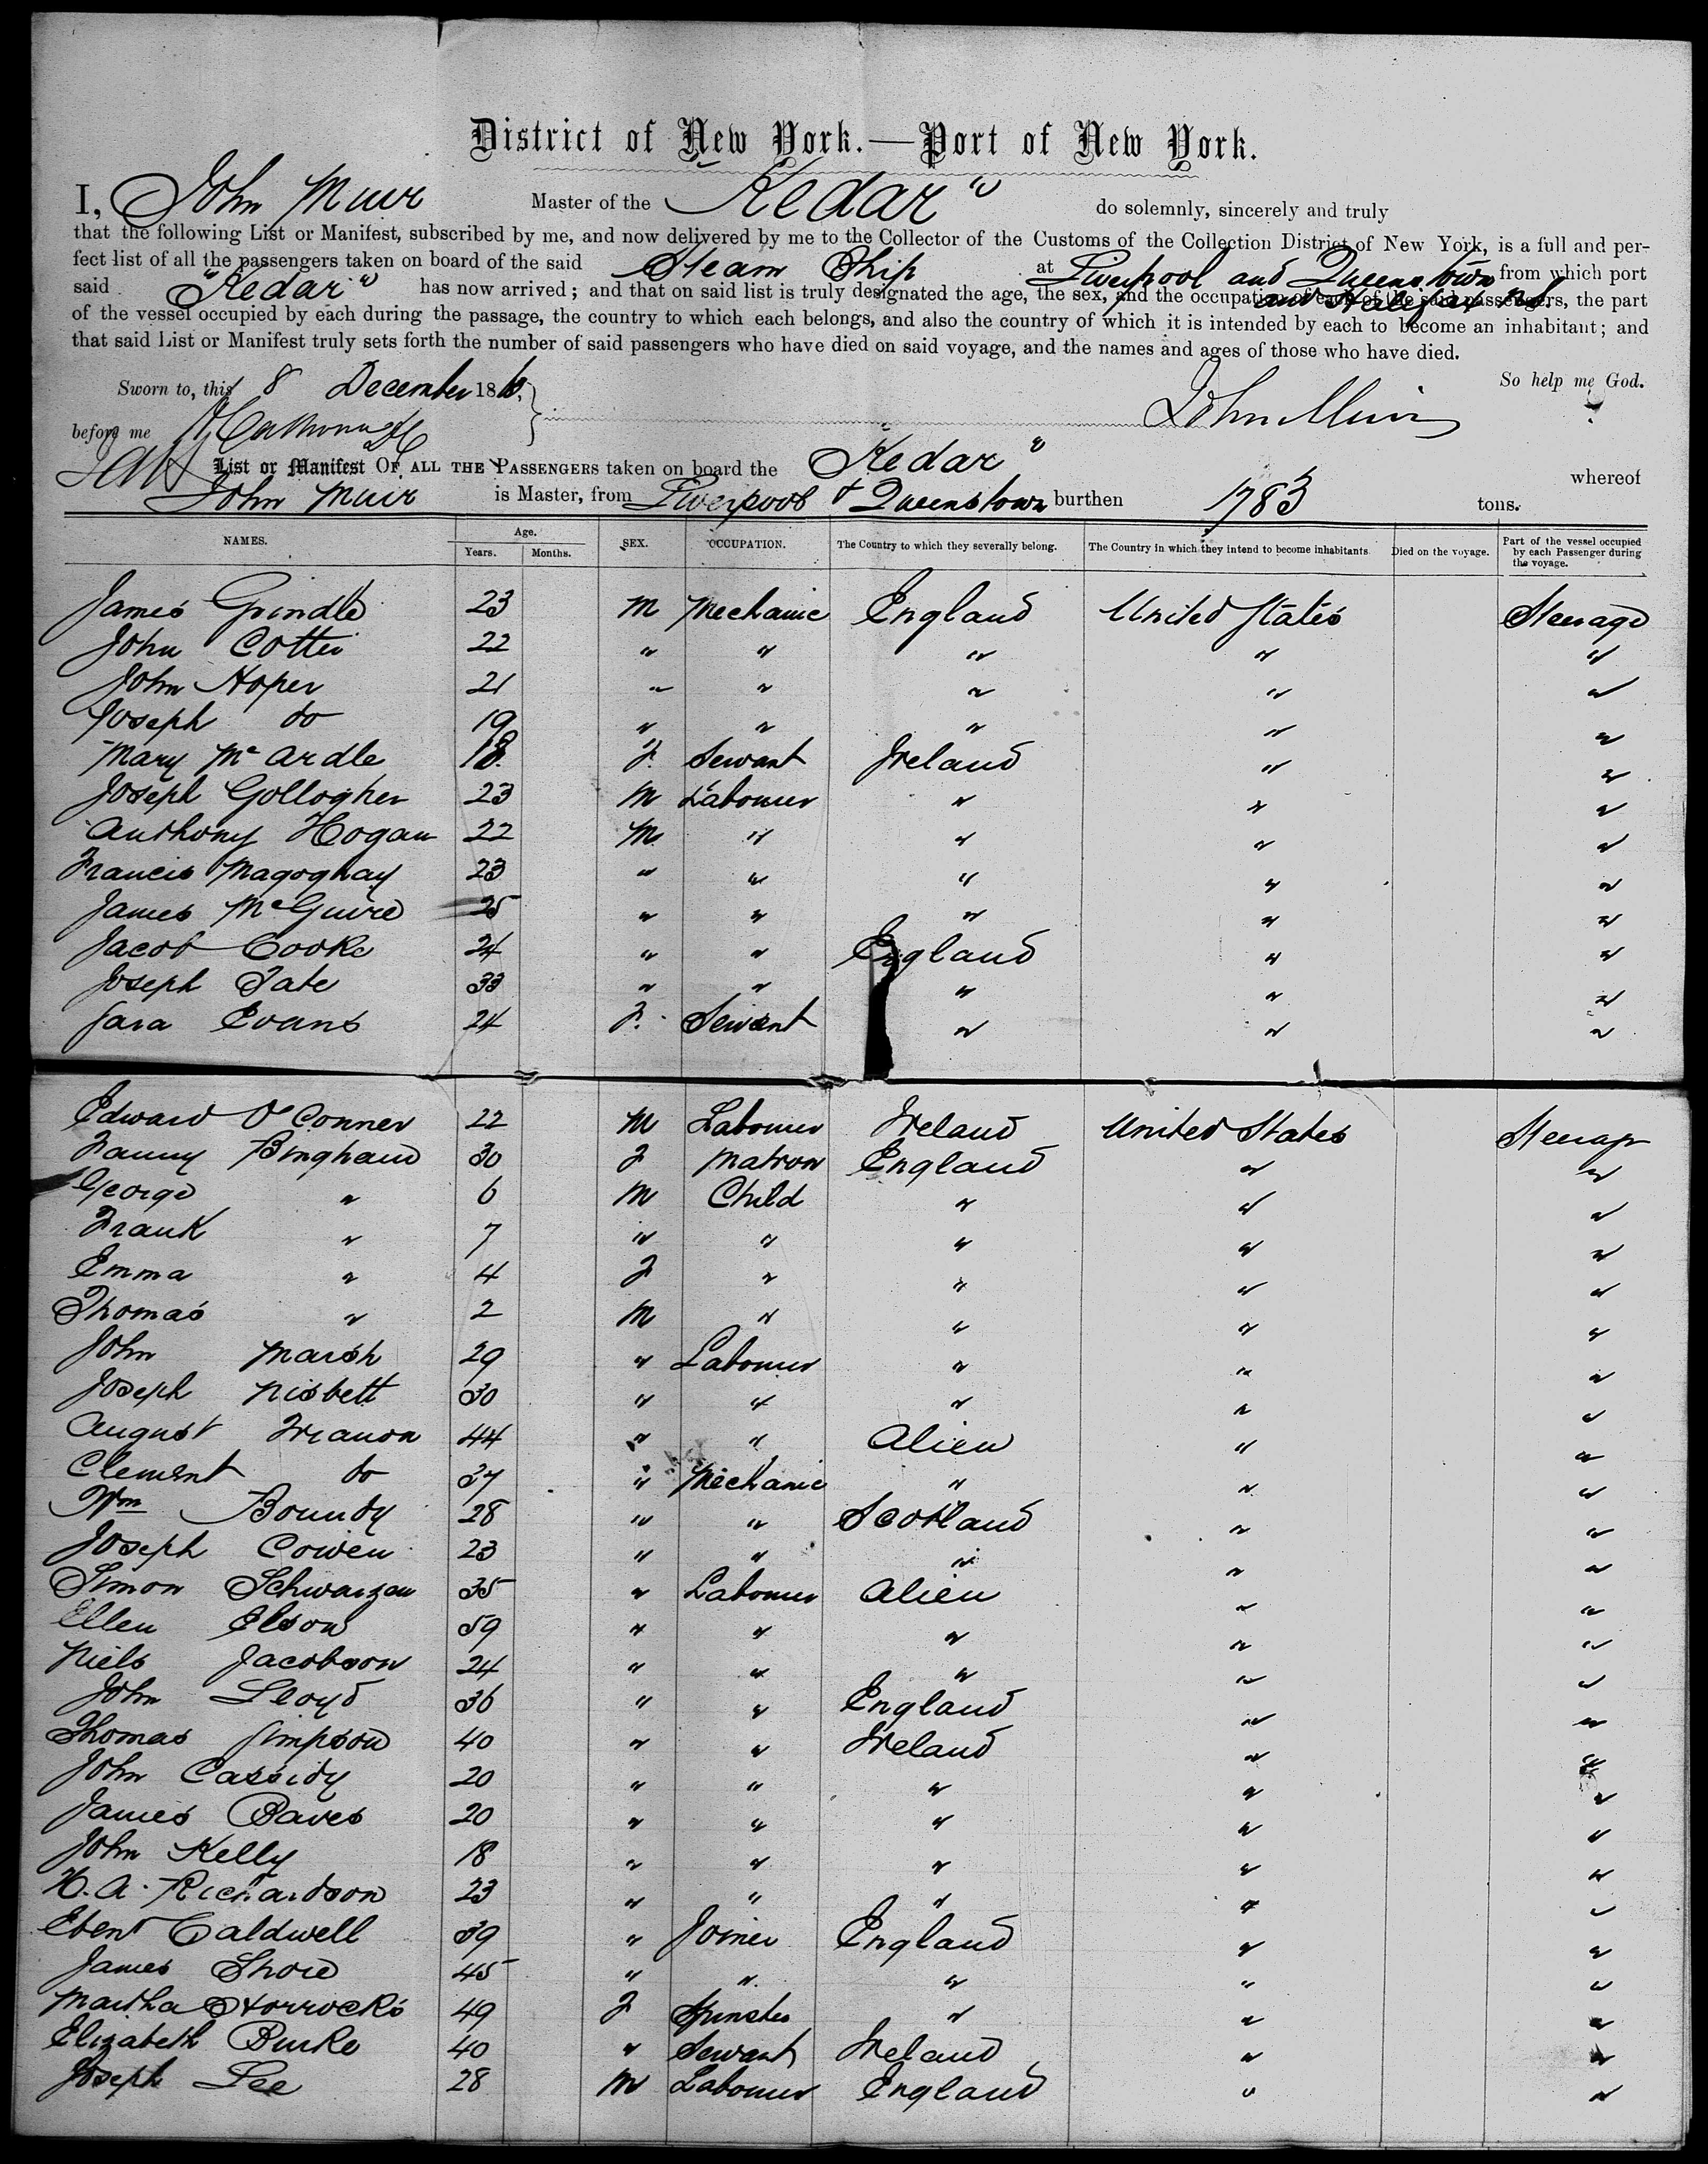 District of New York.—Port of New York.
I, John Muir Master of the "Kedar" do solemnly, sincerely and truly
that the following List or Manifest, subscribed by me, and now delivered by me to the Collector of the Customs of the Collection District of New York, is a full and per-
fect list of all the passengers taken on board of the said Steam Ship at Liverpool and Queenstown from which port
and Halifax
said "Kedar" has now arrived; and that on said list is truly designated the age, the sex, and the occupation of each of the said passengers, the part
of the vessel occupied by each during the passage, the country to which each belongs, and also the country of which it is intended by each to become an inhabitant; and
that said List or Manifest truly sets forth the number of said passengers who have died on said voyage, and the names and ages of those who have died.
So help me God.
Sworn to, this 8 December 186
before me John Muir
List or Manifest OF ALL THE PASSENGERS taken on board the Kedar" whereof
John Muir is Master, from Liverpool + Queenstown burthen 1783 tons.
NAMES. Age. Years. Months. SEX. OCCUPATION. The Country to which they severally belong. The Country in which they intend to become inhabitants. Died on the voyage. Part of the vessel occupied by each Passenger during the voyage.
James Grindle 23 M Mechanic England United States Steerage
John Cotter 22 " " " " "
John Hoper 21 " " " " "
Joseph do 19 " " " " "
Mary McArdle 18 F. Servant Ireland " "
Joseph Gollogher 23 M Labourer " " "
Anthony Hogan 22 M. " " " "
Francis Magoghay 23 " " " " "
James McGuire 25 " " " " "
Jacob Cooke 24 " " England " "
Joseph Tate 33 " " " " "
Sara Evans 24 F. Servant " " "
Edward O'Conner 22 M Labourer Ireland United States Steerage
Fanny Bingham 30 F Matron England " "
George " 6 M Child " " "
Frank " 7 " " " " "
Emma " 4 F " " " "
Thomas " 2 M " " " "
John Marsh 29 " Labourer " " "
Joseph Nisbett 30 " " " " "
August 44 " " Alien " "
Clement do 37 " Mechanic " " "
Wm Boundy 28 " " Scotland " "
Joseph Cowen 23 " " " " "
Simon Schwarzau 35 " Labourer Alien " "
Ellen Elson 59 " " " " "
Niels Jacobson 24 " " " " "
John Lloyd 36 " " England " "
Thomas Simpson 40 " " Ireland " "
John Cassidy 20 " " " " "
James Baves 20 " " " " "
John Kelly 18 " " " " "
H. A. Richardson 23 " " " " "
Ebenr Caldwell 39 " Joiner England " "
James Shore 45 " " " " "
Martha Horrocks 49 F Spinster " " "
Elizabeth Burke 40 " Servant Ireland " "
Joseph Lee 28 M Labourer England " "